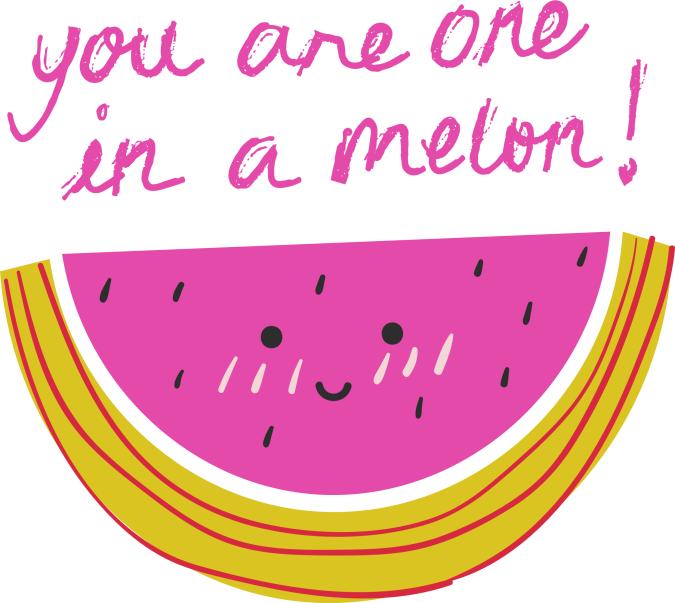 you are one
in a melon!